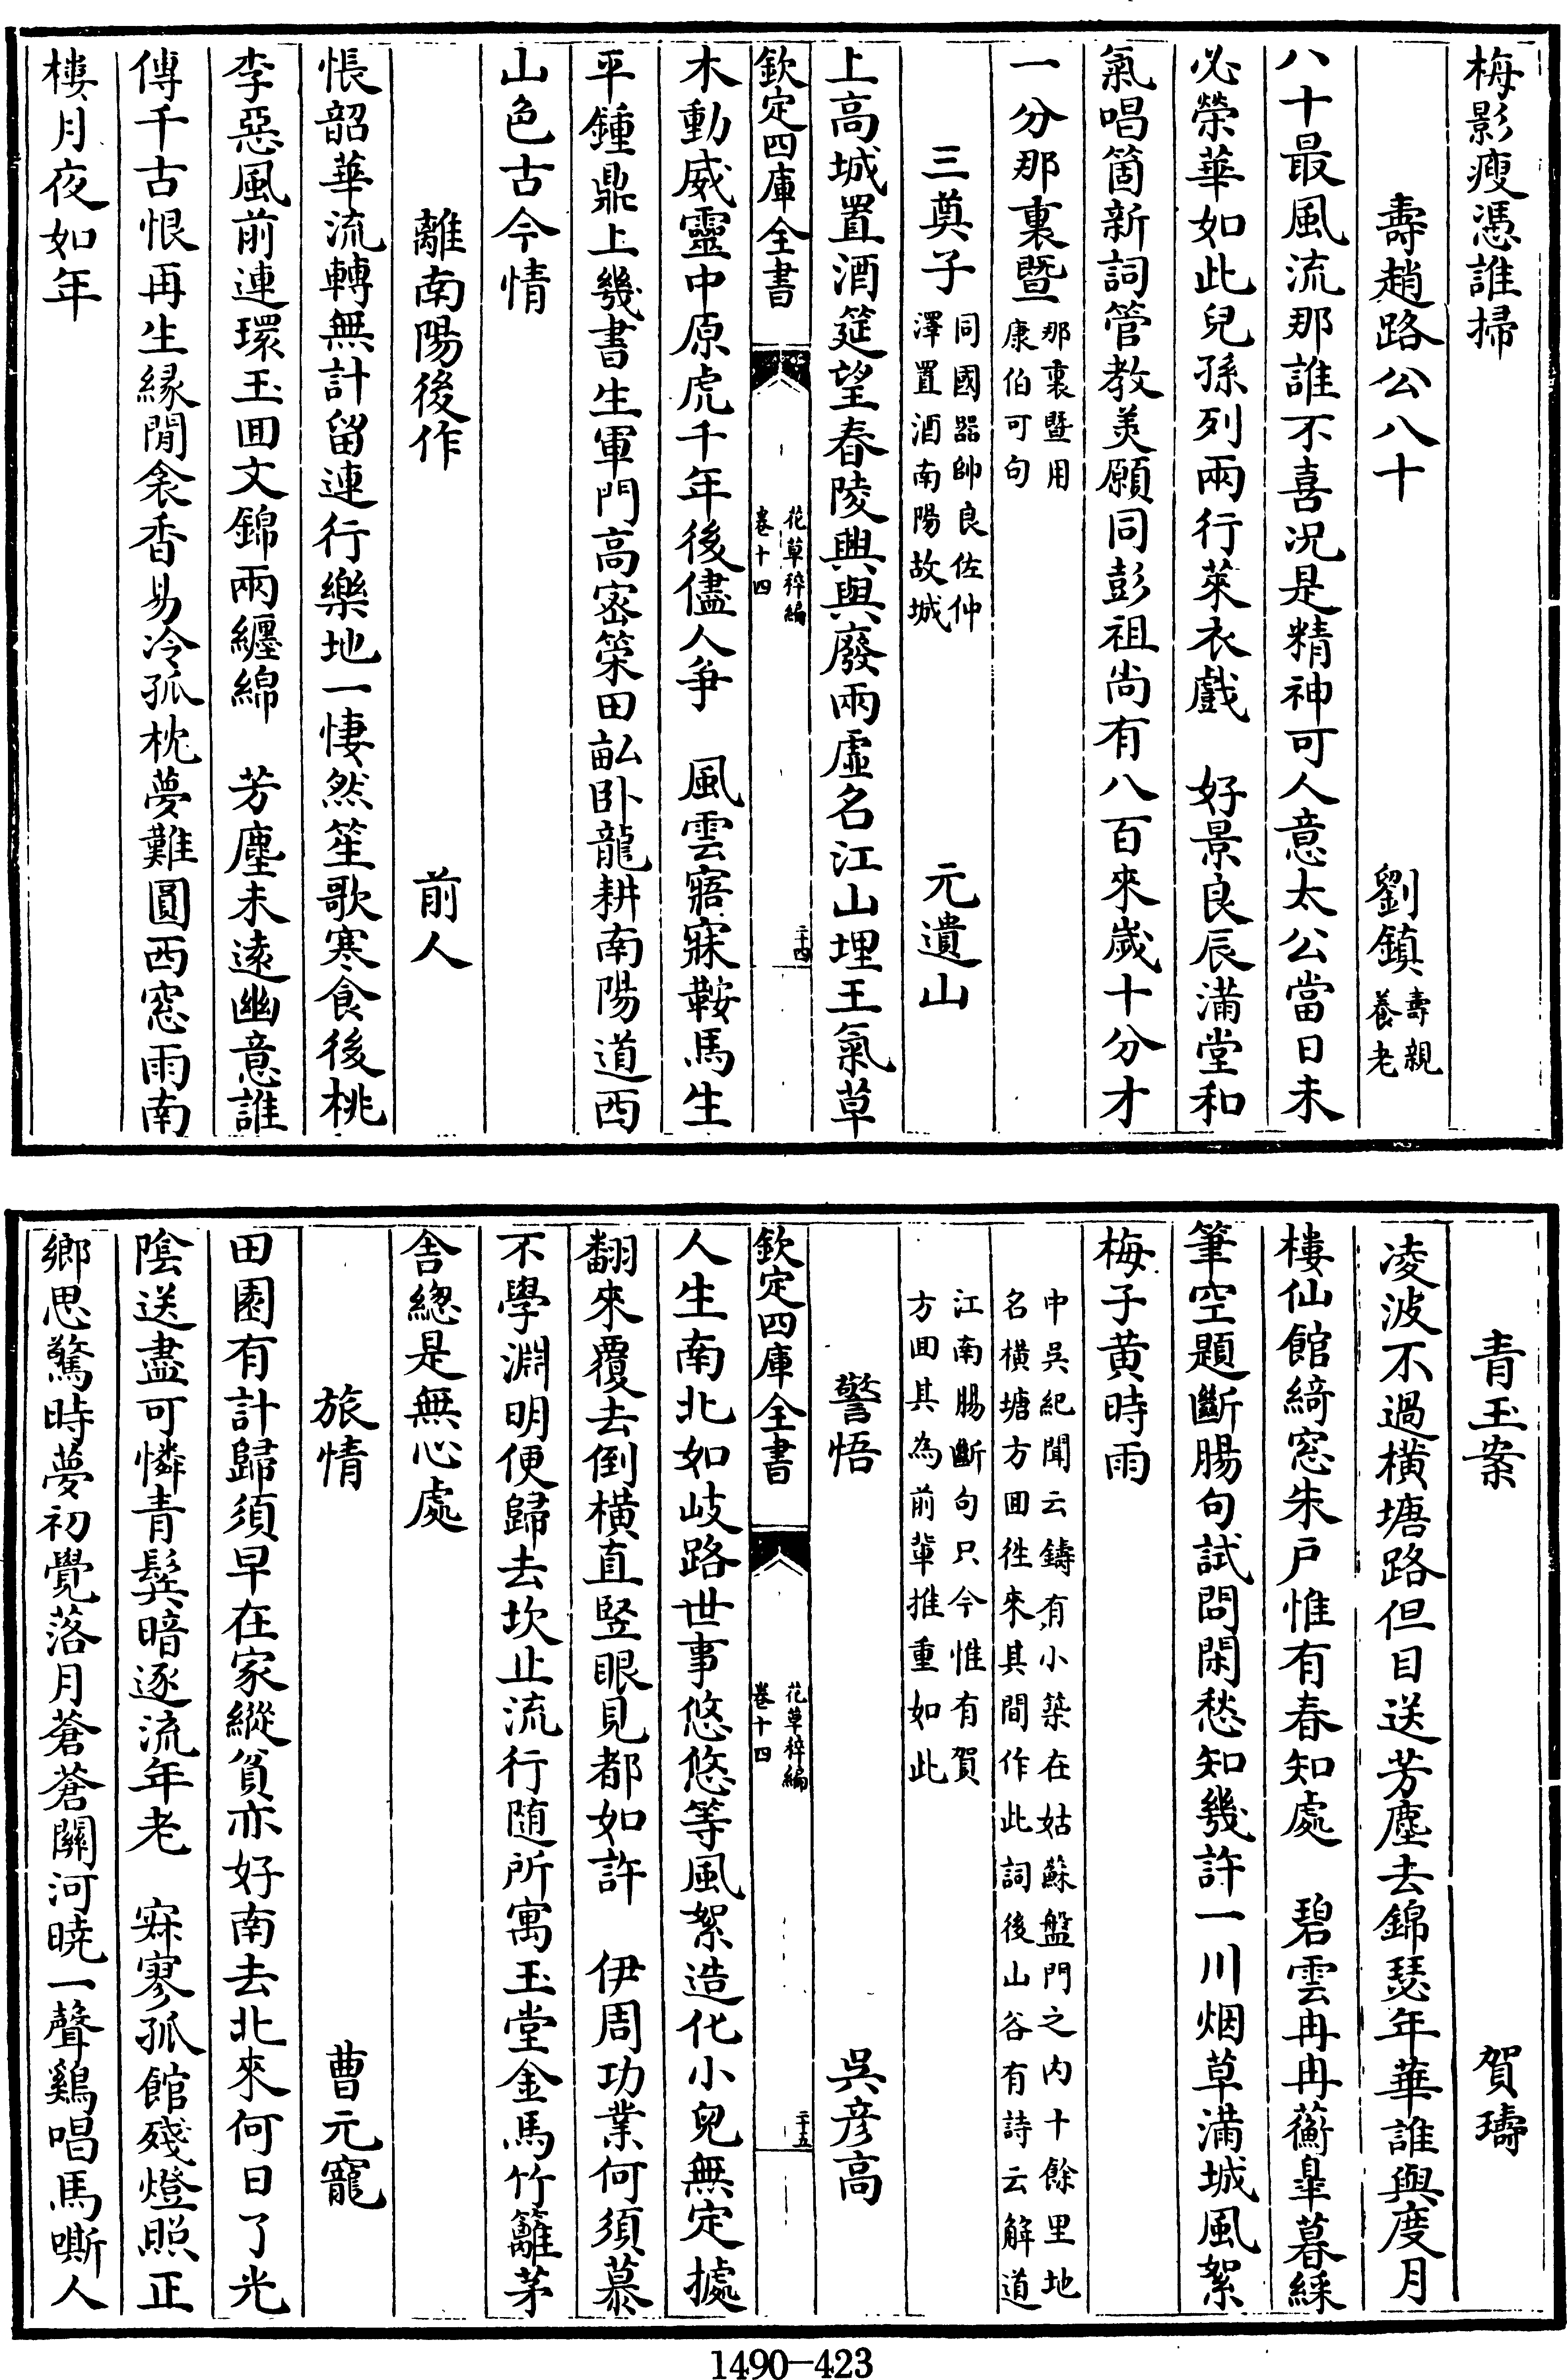 梅影瘦憑誰掃
壽趙路公八十　劉鎮壽親養老
八十最風流那誰不喜况是精神可人意太公當日未
必榮華如此兒孫列兩行萊衣戲　好景良辰滿堂和
氣唱箇新詞管教美願同彭祖尚有八百來嵗十分才
一分那裏暨那裏暨用康伯可句
三奠子同國器帥良佐仲澤置酒南陽故城　元遺山
上高城置酒筵望春陵興與廢兩虚名江山埋王氣草
木動威靈中原虎千年後儘人爭　風雲寤寐鞍馬生
平鍾鼎上幾書生軍門高宻䇿田畝卧龍耕南陽道西
山色古今情
離南陽後作　前人
悵韶華流轉無計留連行樂地一悽然笙歌寒食後桃
李惡風前連環玉回文錦兩纏綿　芳塵未遠幽意誰
傳千古恨再生縁閒衾香易冷孤枕夢難圓西窓雨南
樓月夜如年
欽定四庫全書　花草稡編卷十四　二十四
青玉案　賀璹
凌波不過横塘路但目送芳塵去錦瑟年華誰與度月
樓仙館綺窓朱户惟有春知處　碧雲冉冉蘅臯暮綵
筆空題斷腸句試問閑愁知幾許一川烟草滿城風絮
梅子黄時雨
中吳紀聞云鑄有小築在姑蘇盤門之内十餘里地
名横塘方回徃來其間作此詞後山谷有詩云解道
江南腸斷句只今惟有賀
方回其為前軰推重如此
警悟　吳彦高
欽定四庫全書　花草稡編卷十四　二十五
人生南北如岐路世事悠悠等風絮造化小兒無定據
翻來覆去倒横直竪眼見都如許　伊周功業何須慕
不學淵明便歸去坎止流行随所寓玉堂金馬竹籬茅
舍總是無心處
旅情　曹元寵
田園有計歸須早在家縱貧亦好南去北來何日了光
陰送盡可憐青鬂暗逐流年老　寂寥孤館殘燈照正
鄉思驚時夢初覺落月蒼蒼關河曉一聲鷄唱馬嘶人
1490—423